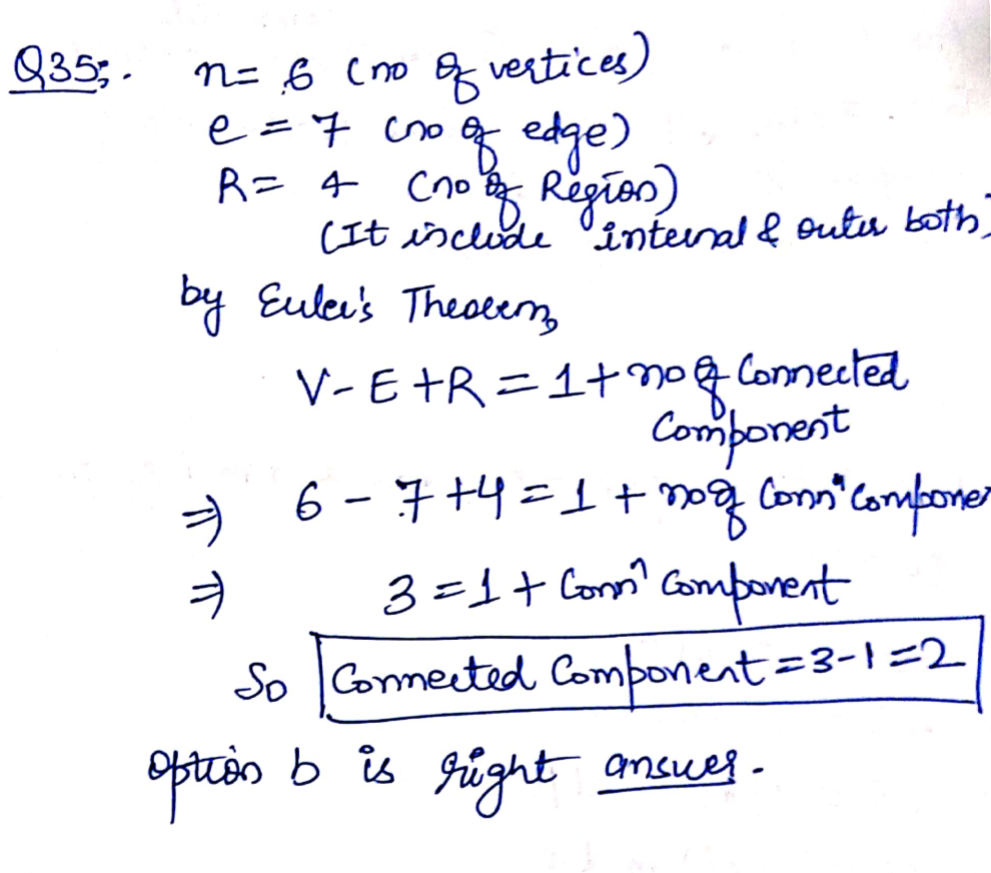 Q35:. n= 6 (no of vertices)
e = 7 (no of edge)
R= 4 (no of Region)
(It include internal & outer both)
by Euler's Theorem,
V-E+R=1+no of Connected
Component
⇒ 6 - 7+4=1 + no of Connⁿ Componen
⇒ 3 =1+ Connⁿ Component
So Connected Component=3-1=2
option b is right answer.